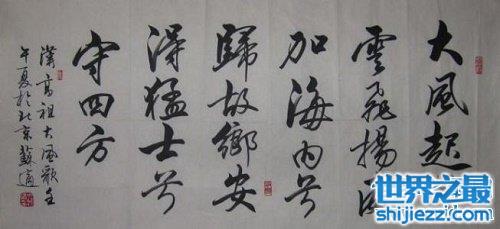 大風起
雲飛揚
加海内兮
歸故鄉安
得猛士兮
守四方
漢高祖大風歌壬
午夏於北京蘇適
世界之最
shijiezz.com